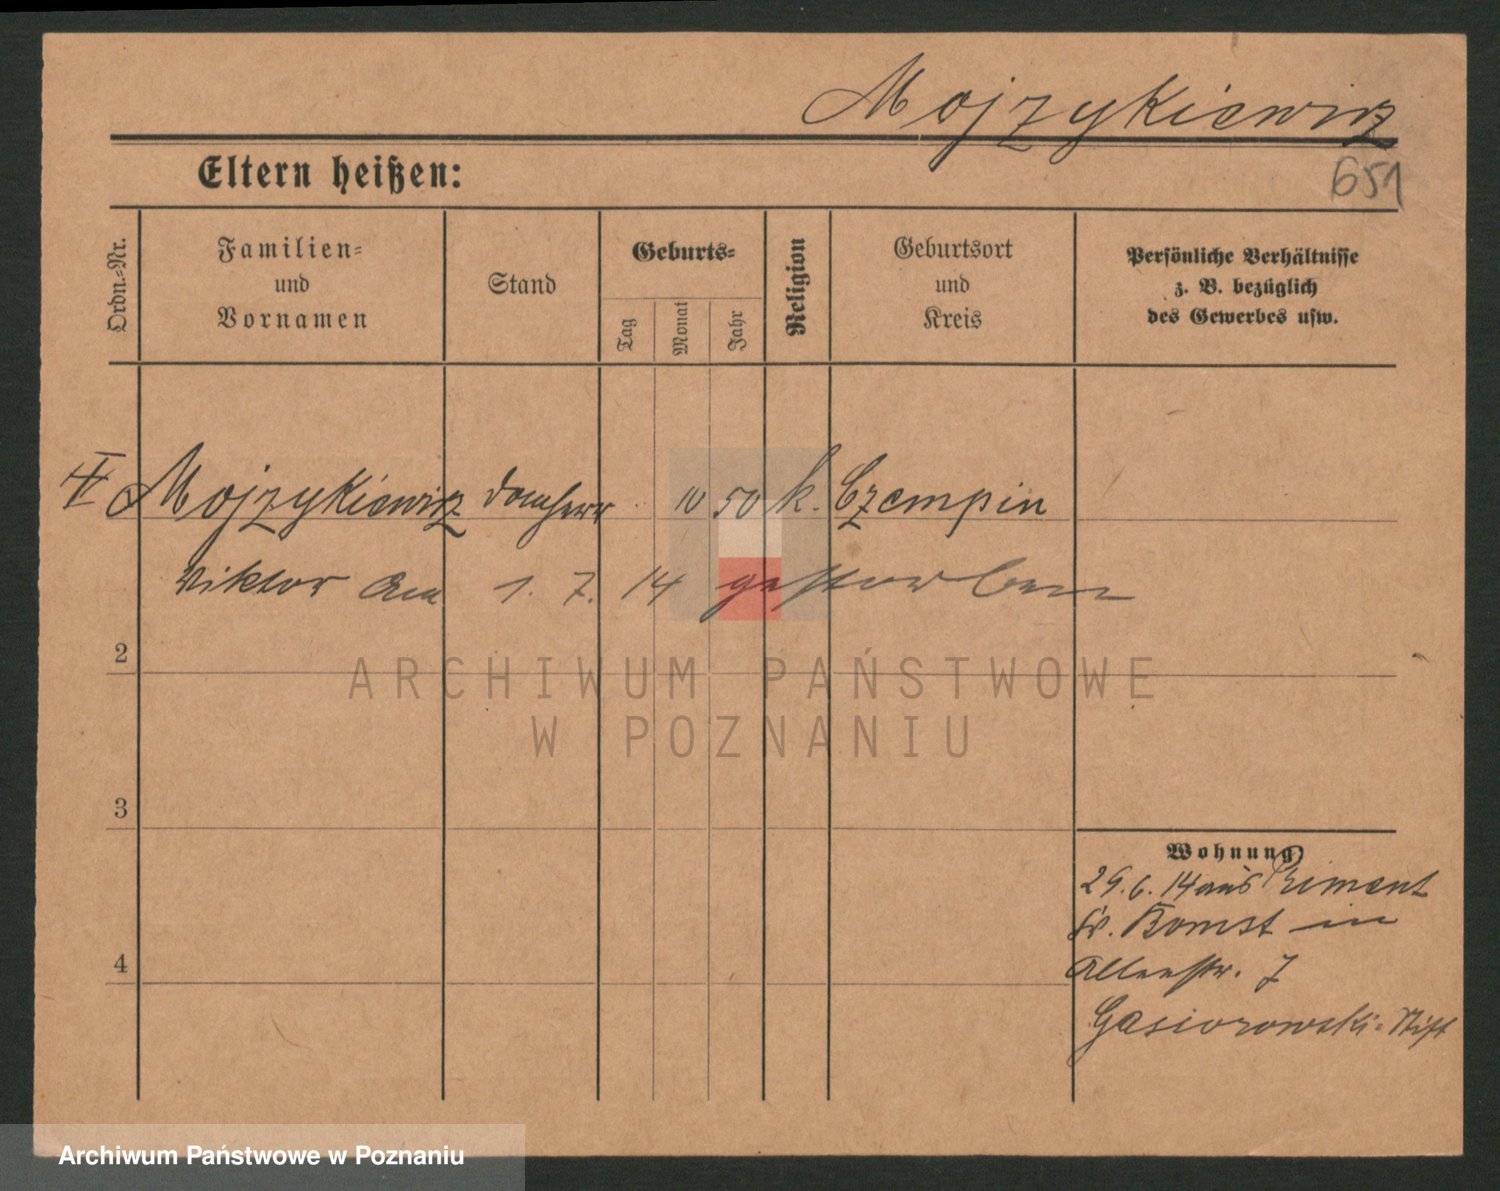 Mojzykiewicz
651
Eltern heißen:
Ordn.-Nr.
Familien-
und
Vornamen
Stand
Geburts-
Tag
Monat
Jahr
Religion
Geburtsort
und
Kreis
Persönliche Verhältnisse
z. B. bezüglich
des Gewerbes usw.
Mojzykiewicz Domherr 10 50 k. Czempin
Viktor am 1. 7. 14 gestorben
2
3
4
Wohnung
29. 6. 14 aus Priment
Kr. Bomst in
Alleestr. 7
Gasiorowski-Stift
ARCHIWUM PAŃSTWOWE
W POZNANIU
Archiwum Państwowe w Poznaniu